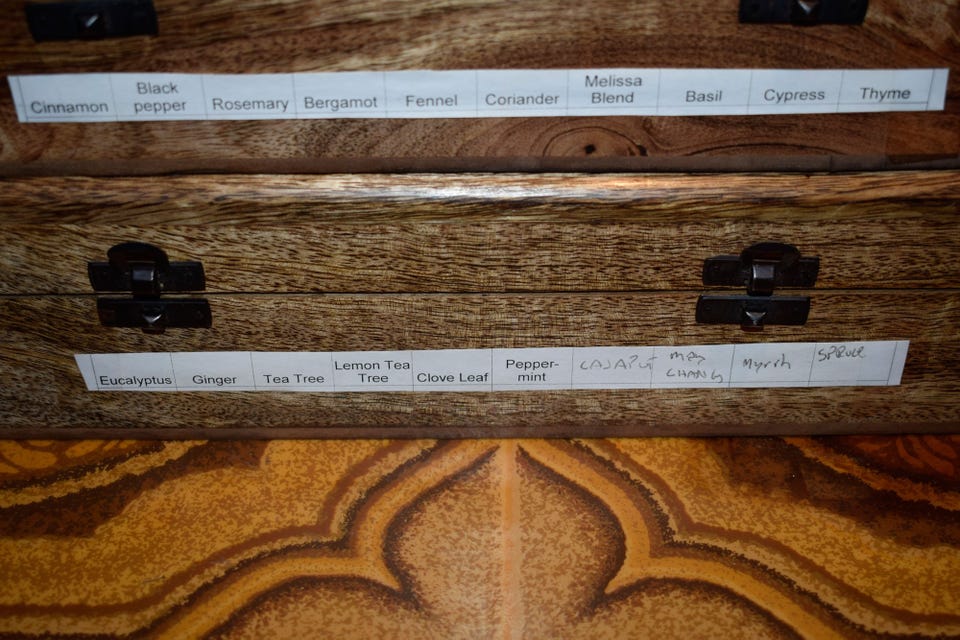 Cinnamon
Black
pepper
Rosemary
Bergamot
Fennel
Coriander
Melissa
Blend
Basil
Cypress
Thyme
Eucalyptus
Ginger
Tea Tree
Lemon Tea
Tree
Clove Leaf
Pepper-
mint
May
CHANG
Myrrh
SPRUCE